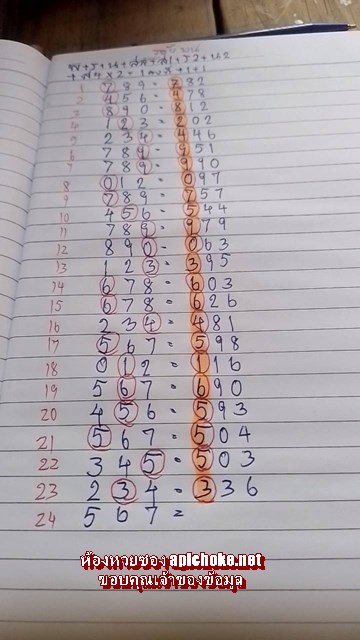 1 789 - 782
2 456 - 478
3 890 - 812
4 123 - 202
5 234 - 446
6 789 - 951
7 789 - 990
8 012 - 097
9 789 - 757
10 456 - 544
11 789 - 979
12 890 - 063
13 123 - 395
14 678 - 603
15 678 - 626
16 234 - 481
17 567 - 598
18 012 - 116
19 567 - 690
20 456 - 593
21 567 = 504
22 345 - 503
23 234 = 336
24 567 =
ห้องหวยซอง apichoke.net
ขอบคุณเจ้าของข้อมูล